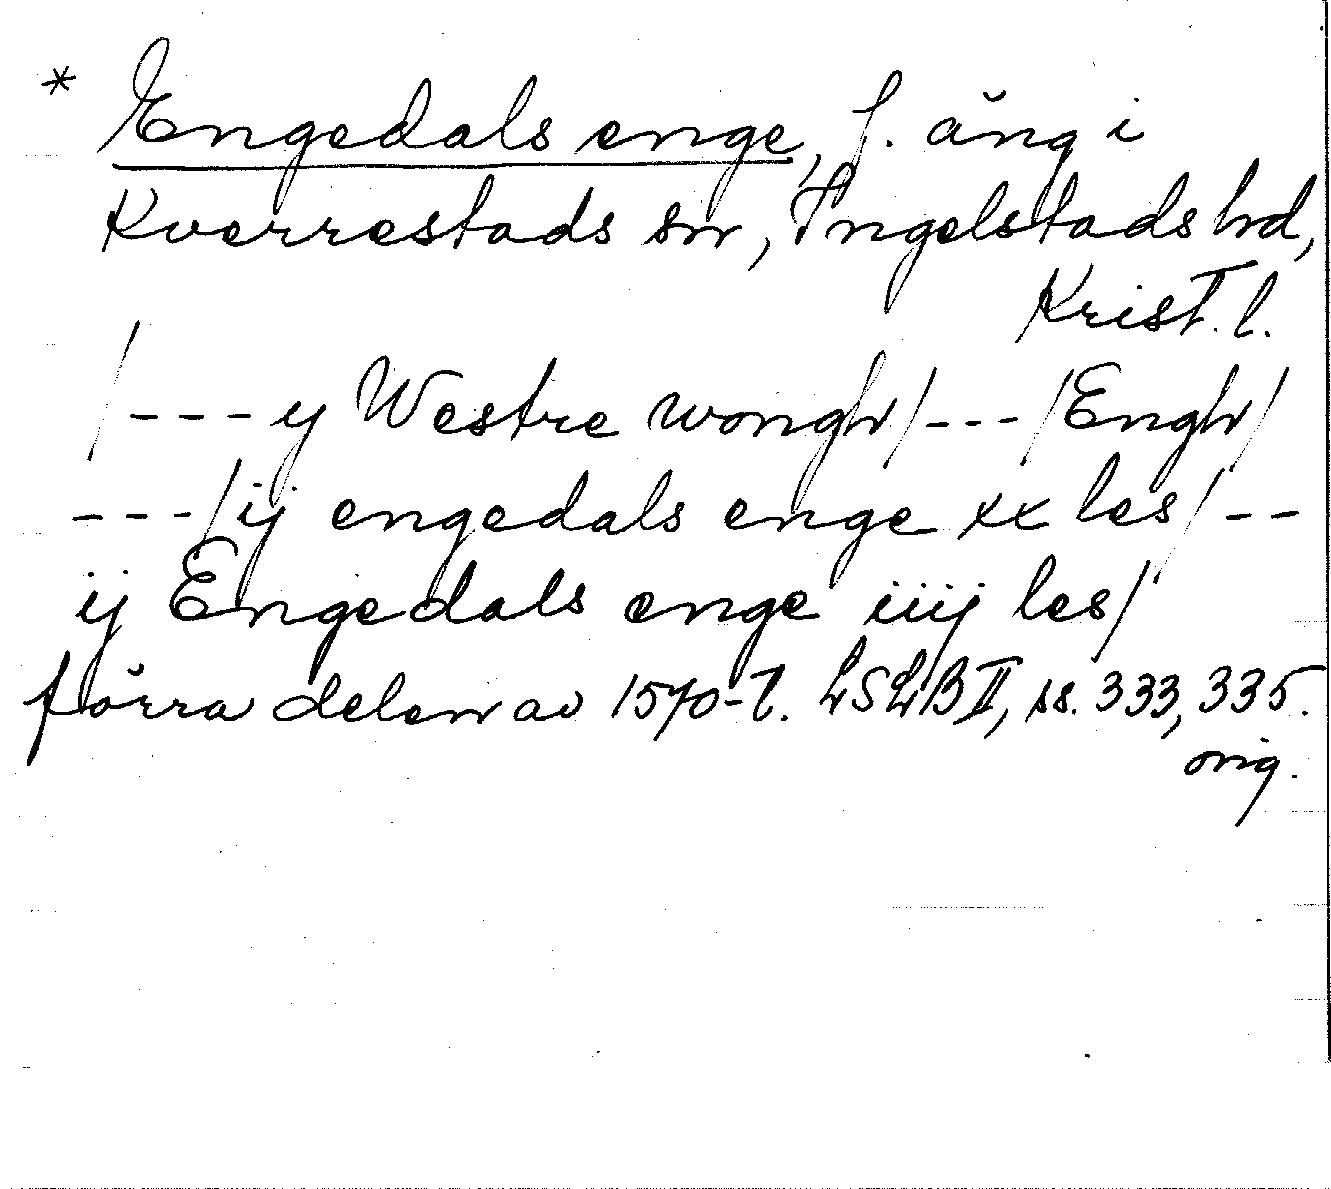 * Engedals enge, f. äng i
Kverrestads sn, Ingelstads hd,
Krist. l.
/---y Westre wongh/---/Engh/
---/ij engedals enge xx les/--
ij Engedals enge iiij les/
förra delen av 1570-t. LSLB II, ss. 333, 335.
orig.